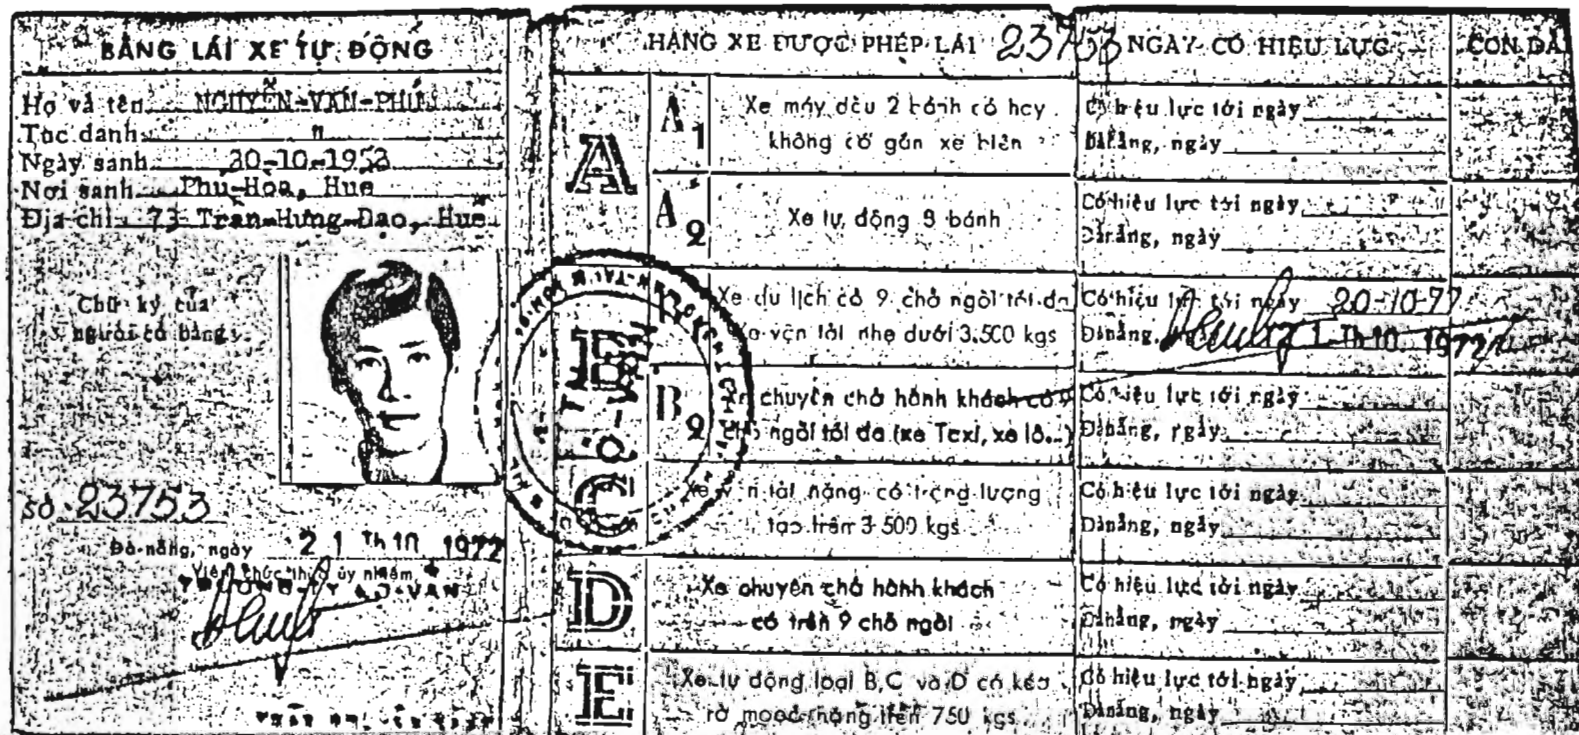 BẰNG LÁI XE TỰ ĐỘNG
Họ và tên NGUYỄN-VĂN-PHÚ
Tục danh "
Ngày sanh 30-10-1953
Nơi sanh Phú-Hòa, Huế
Địa-chỉ 73 Trần-Hưng-Đạo, Huế
Chữ ký của
người có bằng
số 23753
Đà-nẵng, ngày 21 Th 10 1972
Viên chức thụ ủy nhiệm
HẠNG XE ĐƯỢC PHÉP LÁI 23753
NGÀY CÓ HIỆU LỰC
CON DẤ
A
A1
Xe máy dầu 2 bánh có hay
không có gắn xe bên
Có hiệu lực tới ngày
Đànẵng, ngày
A2
Xe tự động 3 bánh
Có hiệu lực tới ngày
Đànẵng, ngày
B
Xe du lịch có 9 chỗ ngồi tối đa
Xe vận tải nhẹ dưới 3.500 kgs
Có hiệu lực tới ngày 20-10-77
Đànẵng, ngày 21 Th 10 1972
B2
Xe chuyên chở hành khách có 9
chỗ ngồi tối đa (xe Taxi, xe lô...)
Có hiệu lực tới ngày
Đànẵng, ngày
C
Xe vận tải nặng có trọng lượng
tạo trên 3 500 kgs
Có hiệu lực tới ngày
Đànẵng, ngày
D
Xe chuyên chở hành khách
có trên 9 chỗ ngồi
Có hiệu lực tới ngày
Đànẵng, ngày
E
Xe tự động loại B, C và D có kéo
rờ mooc nặng trên 750 kgs
Có hiệu lực tới ngày
Đànẵng, ngày